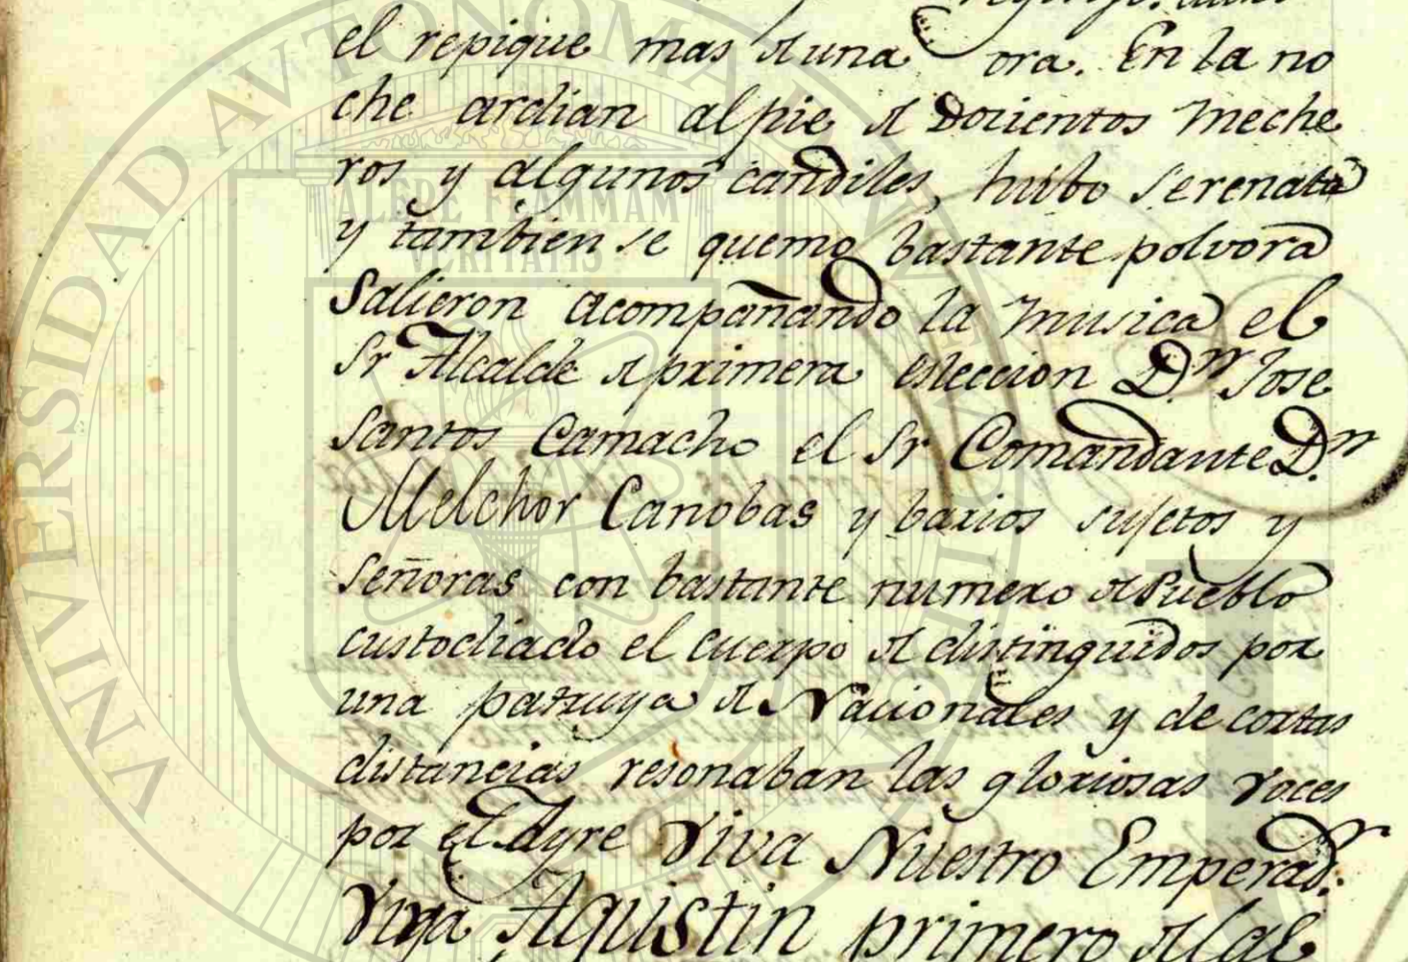 el repique mas de una ora. En la no
che ardian al pie de Docientos Meche
ros y algunos candiles, hubo serenata
y tambien se quemo bastante polvora
Salieron acompañando la Musica el
Sr Alcalde de primera eleccion Dn. Jose
Santos Camacho el Sr Comandante Dn.
Melchor Canobas y barios sujetos y
Señoras con bastante numero de Pueblo
custodiado el cuerpo de distinguidos por
una patruya de Nacionales y de cortas
distancias resonaban las gloriosas voces
por el Ayre Viva Nuestro Emperador.
Viva Agustin primero
UNIVERSIDAD AVTONOMA
ALERE FLAMMAM
VERITATIS